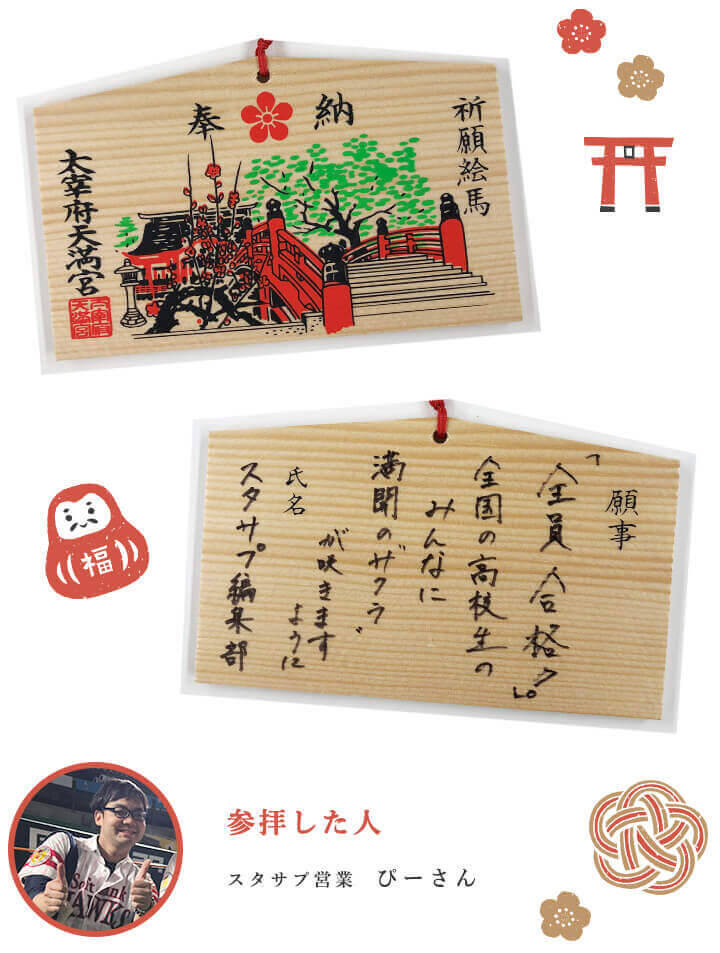 奉納
祈願絵馬
太宰府天満宮
願事
「全員合格」
全国の高校生の
みんなに
満開の〝サクラ〟
が咲きます
ように
氏名
スタサプ編集部
福
SoftBank
HAWKS
参拝した人
スタサプ営業 ぴーさん